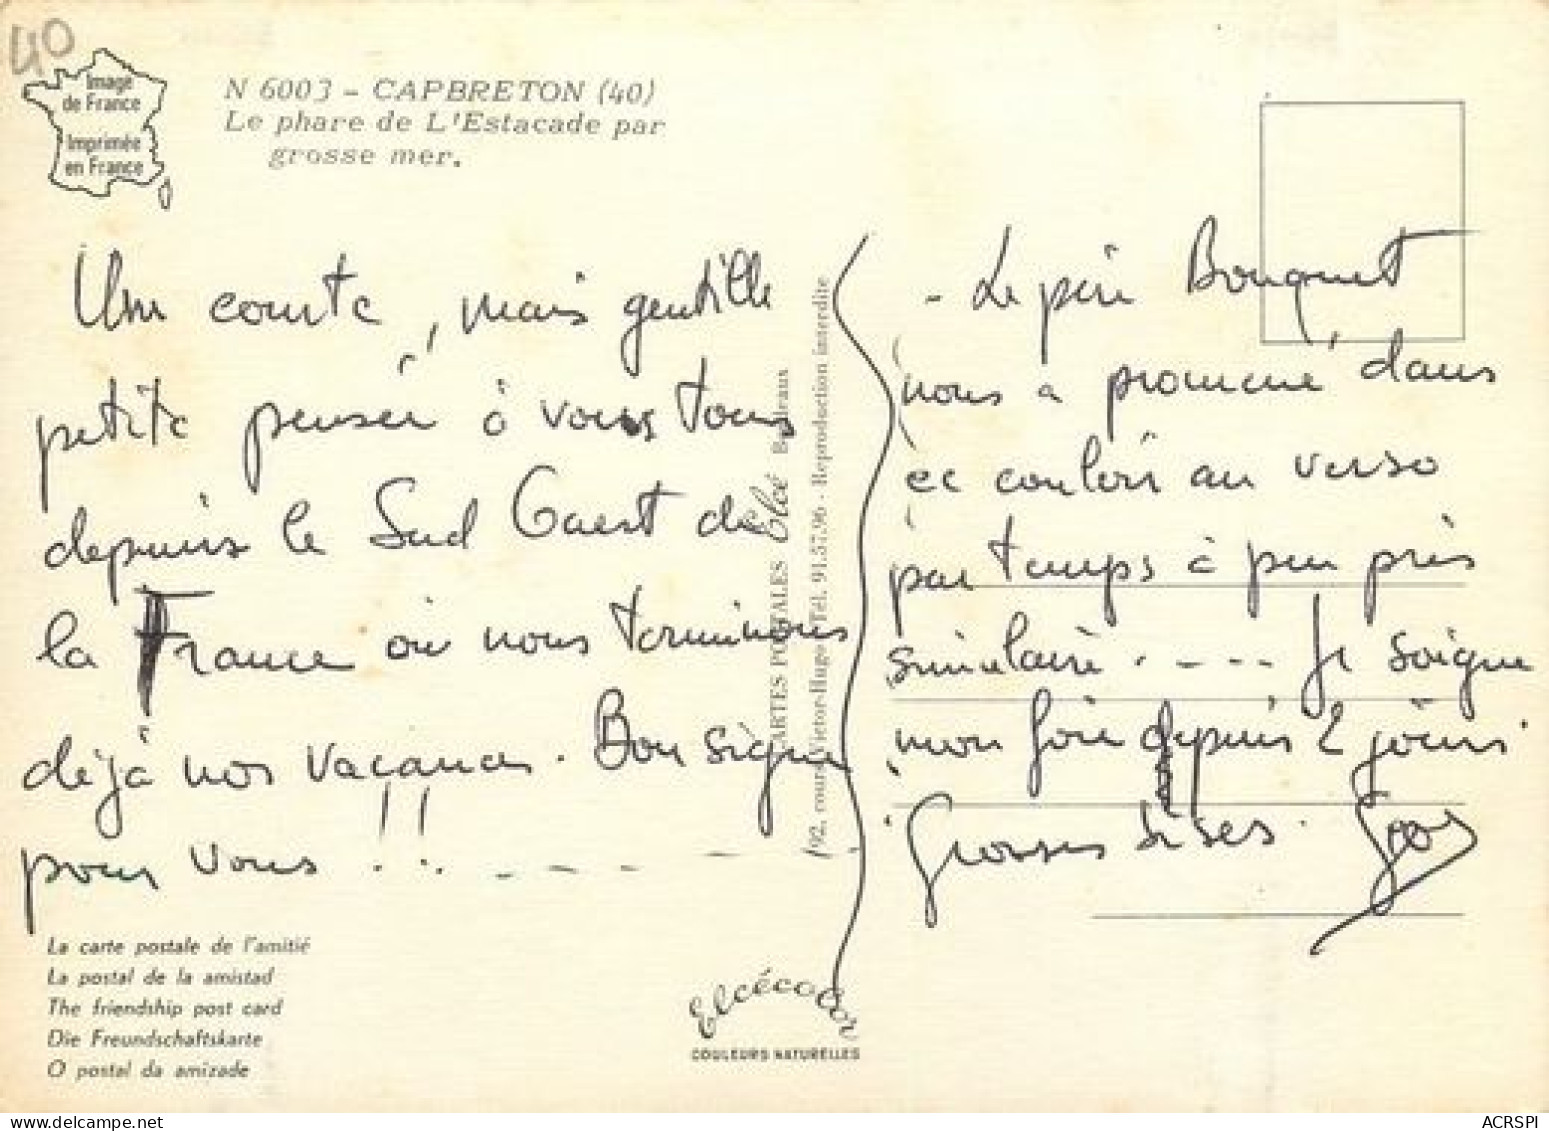 40
Image
de France
Imprimée
en France
N 6003 - CAPBRETON (40)
Le phare de L'Estacade par
grosse mer.
Une courte, mais gentille
petite pensée à vous tous
depuis le Sud Ouest de
la France où nous terminons
déjà nos vacances. Bon signe
pour vous !! - - - -
- Le père Bouquet
nous a promené dans
ce couloir au verso
par temps à peu près
similaire . - - - Je soigne
mon foie depuis 2 jours.
Grosses bises.
CARTES POSTALES Elcé Bordeaux
192, cours Victor-Hugo Tél. 91.57.96 - Reproduction interdite
La carte postale de l'amitié
La postal de la amistad
The friendship post card
Die Freundschaftskarte
O postal da amizade
Elcécolor
COULEURS NATURELLES
ACRSPI